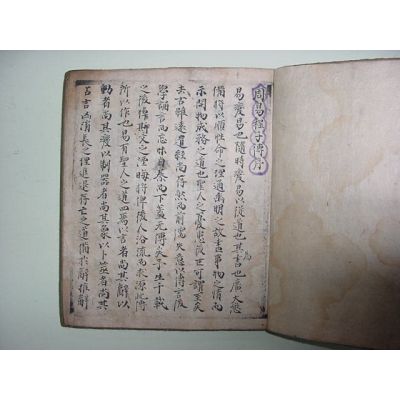 周易程子傳序
易變易也隨時變易以從道也其爲書也廣大悉
備將以順性命之理通幽明之故盡事物之情而
示開物成務之道也聖人之憂患後世可謂至矣
去古雖遠遺經尚存然而前儒失意以傳言後
學誦言而忘味自秦而下蓋無傳矣予生千載
之後悼斯文之湮晦將俾後人沿流而求源此傳
所以作也易有聖人之道四焉以言者尚其辭以
動者尚其變以制器者尚其象以卜筮者尚其
占吉凶消長之理進退存亡之道備於辭推辭